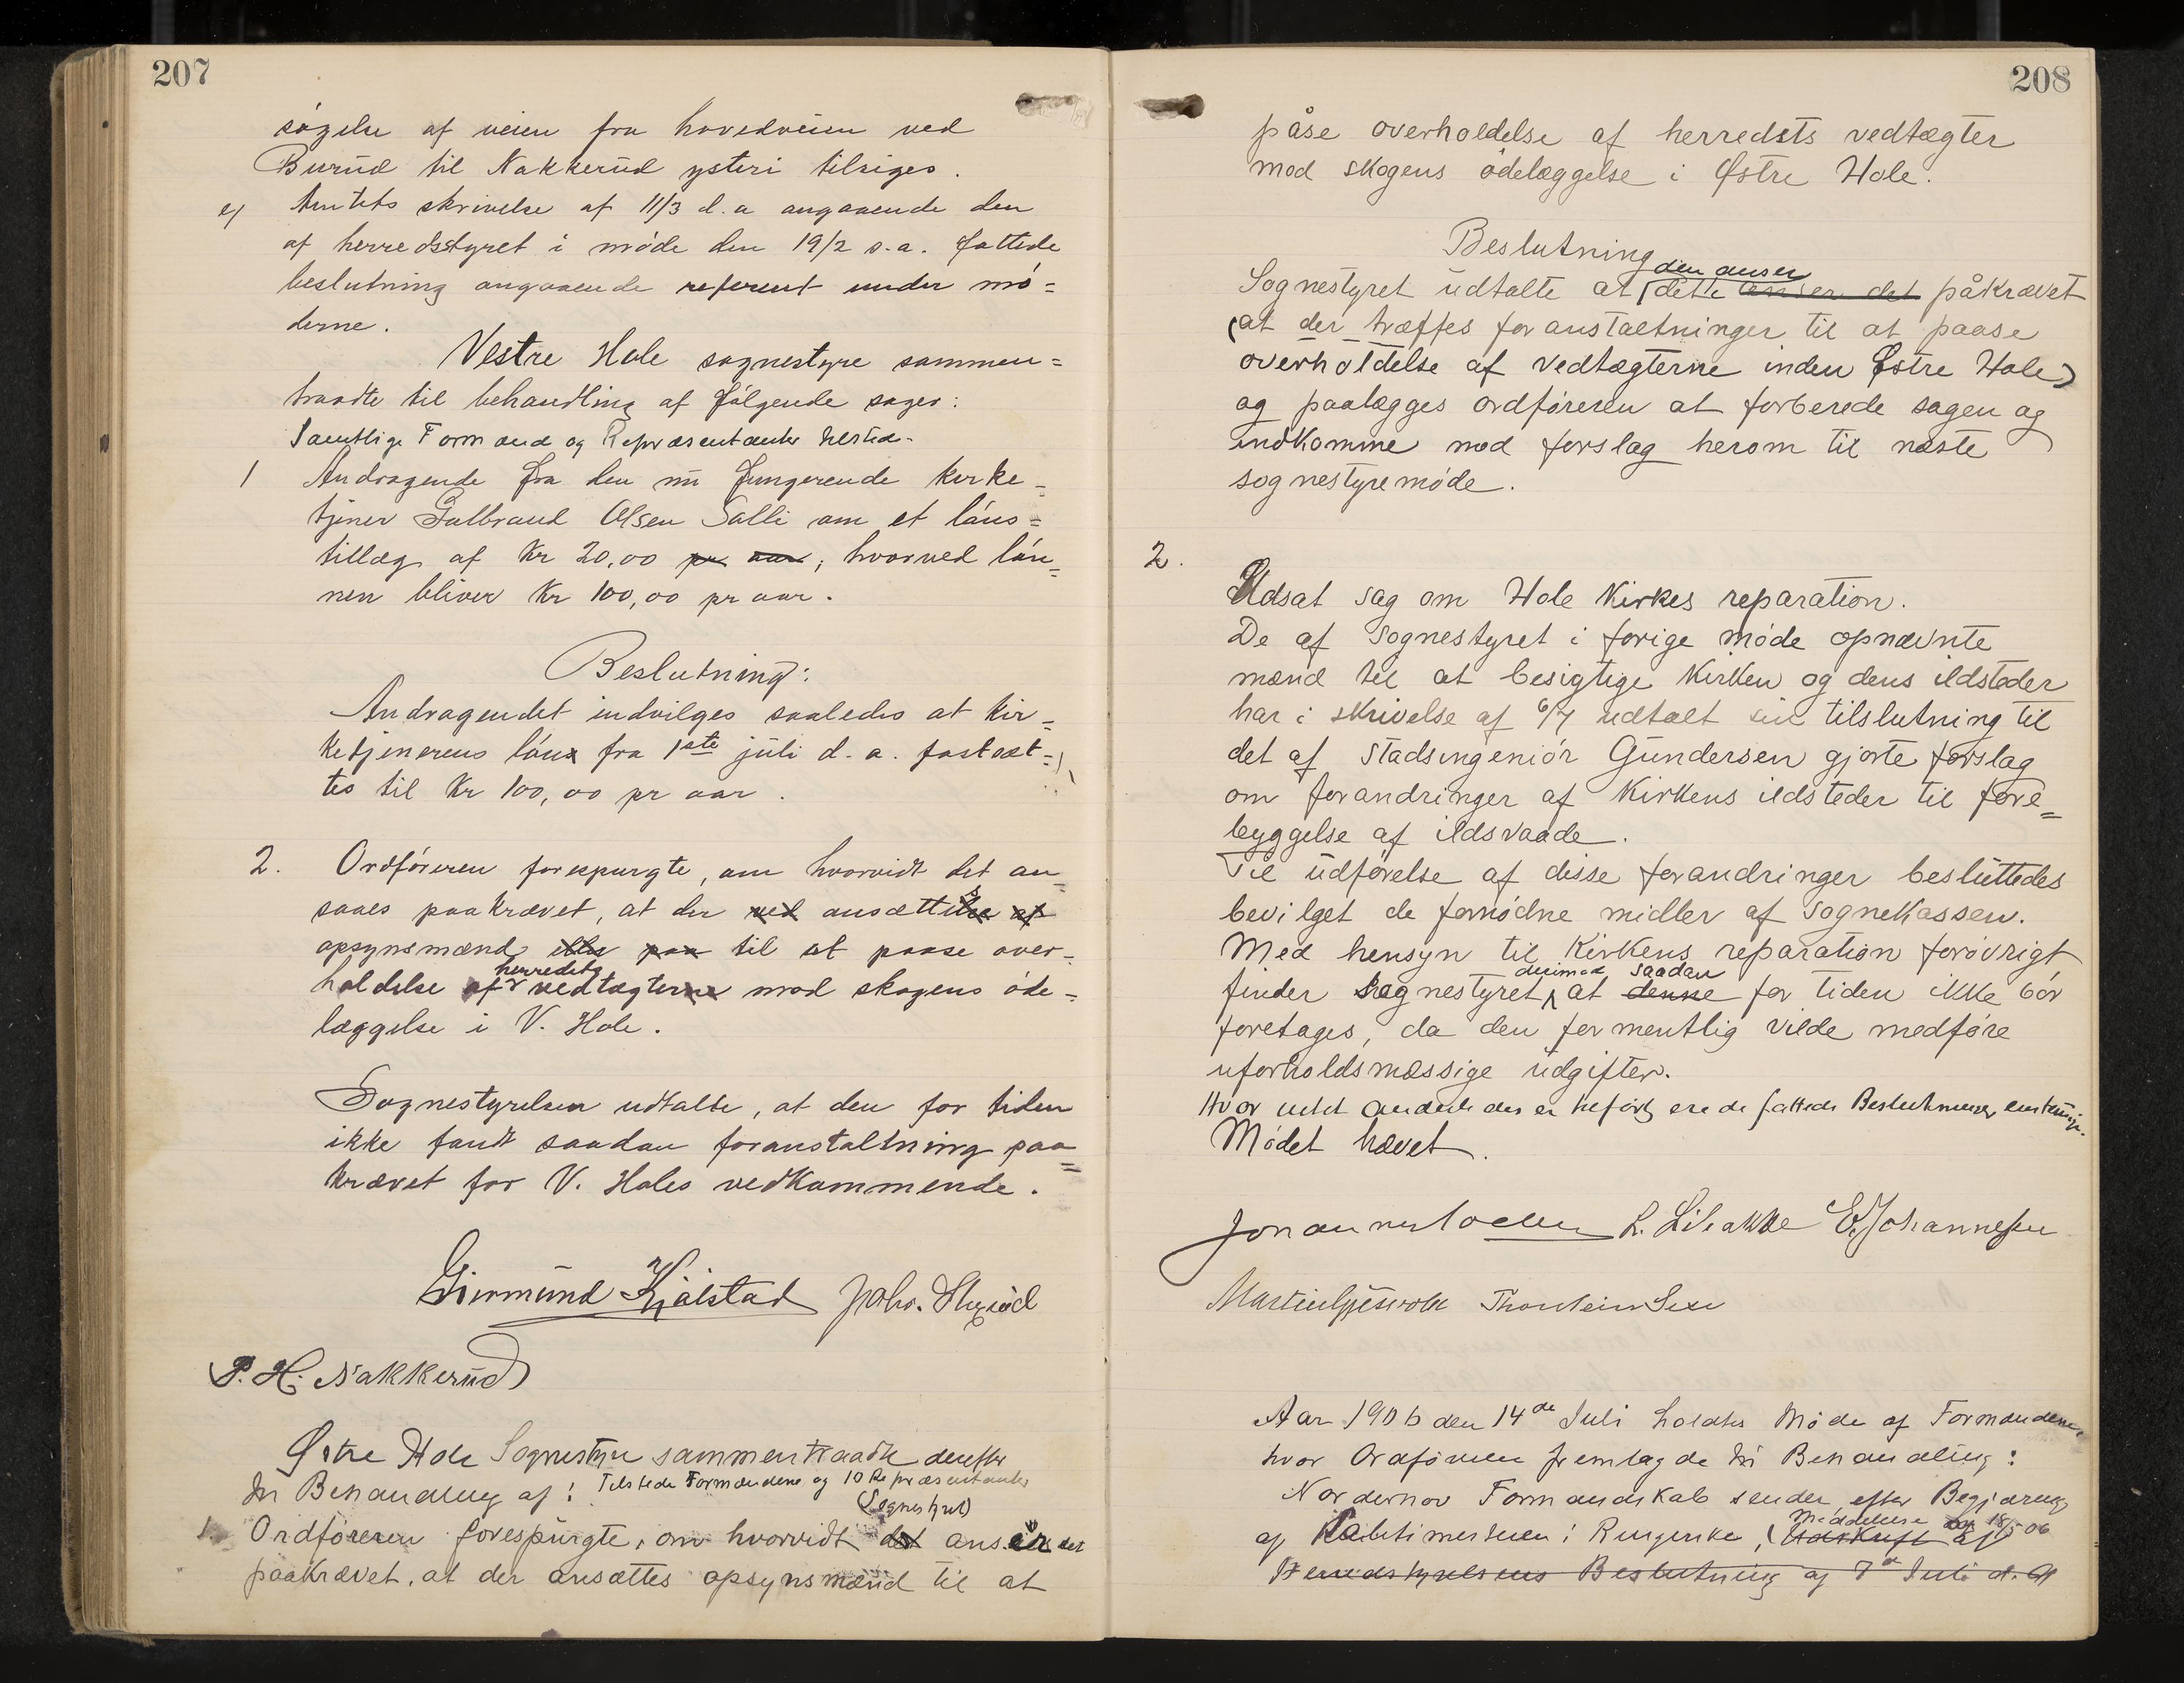 207
søgelse af veien fra hovedveien ved
Burud til Nakkerud ysteri tilsiges.
e) Amtets skrivelse af 11/3 d.a angaaende den
af herredsstyret i møde den 19/2 s.a. fattede
beslutning angaaende referent under mø=
derne.
Vestre Hole sognestyre sammen=
traadte til behandling af følgende sager:
Samtlige Formænd og Repræsentanter tilsted-
1 Andragende fra den nu fungerende kirke-
tjener Gulbrand Olsen Salli om et løns=
tillæg af Kr 20,00 pr aar, hvorved løn=
nen bliver Kr 100,00 pr aar.
Beslutning:
Andragendet indvilges saaledes at kir=
ketjenerens løn fra 1ste juli d.a. fastsæt=
tes til Kr 100,00 pr aar.
2. Ordføreren forespurgte, om hvorvidt det an=
saaes paakrævet, at der ved ansættes af
opsynsmænd eller paa til at paase over-
holdelse af herredets vedtægter mod skogens øde=
læggelse i V. Hole.
Sognestyrelsen udtalte, at den for tiden
ikke fandt saadan foranstaltning paa=
krævet for V. Holes vedkommende.
Giermund Kjølstad Johs.
P. H. Nakkerud
Østre Hole Sognestyre sammentraadte derefter
til Behandling af: Tilstede Formændene og 10 Repræsentanter
(Sognestyret)
1. Ordføreren forespurgte, om hvorvidt det anser det
paakrævet, at der ansættes opsynsmænd til at
208
påse overholdelse af herredets vedtægter
mod skogens ödelæggelse i Østre Hole.
Beslutning
den anser
Sognestyret udtalte at dette anser det påkrævet
(at der træffes foranstaltninger til at paase
overholdelse af vedtægterne inden Østre Hole)
og paalægges ordföreren at forberede sagen og
indkomme med forslag herom til næste
sognestyremöde.
2.
Udsat sag om Hole Kirkes reparation.
De af Sognestyret i forige möde opnævnte
mænd til at besigtige Kirken og dens ildsteder
har i skrivelse af 6/7 udtalt sin tilslutning til
det af Stadsingeniör Gundersen gjorte forslag
om forandringer af Kirkens ildsteder til fore=
byggelse af ildsvaade.
Til udförelse af disse forandringer besluttedes
bevilget de fornödne midler af Sognekassen.
Med hensyn til Kirkens reparation forövrigt
derimod saadan
finder Sognestyret at denne for tiden ikke bör
foretages, da den formentlig vilde medföre
uforholdsmæssige udgifter.
Hvor intet anderledes er tilført, ere de fattede Beslutninger enstemmige.
Mödet hævet.
L. Libakke E. Johannesen
Thorstein
Aar 1906 den 14de Juli holdtes Møde af Formændene,
hvor Ordføreren fremlagde til Behandling:
Nordernov Formandskab sender, efter Begjæring
Meddelelse af 18/5 06
af i Ringerike, Udskrift af
Herredstyrelsens Beslutning af 7de Juli d. A